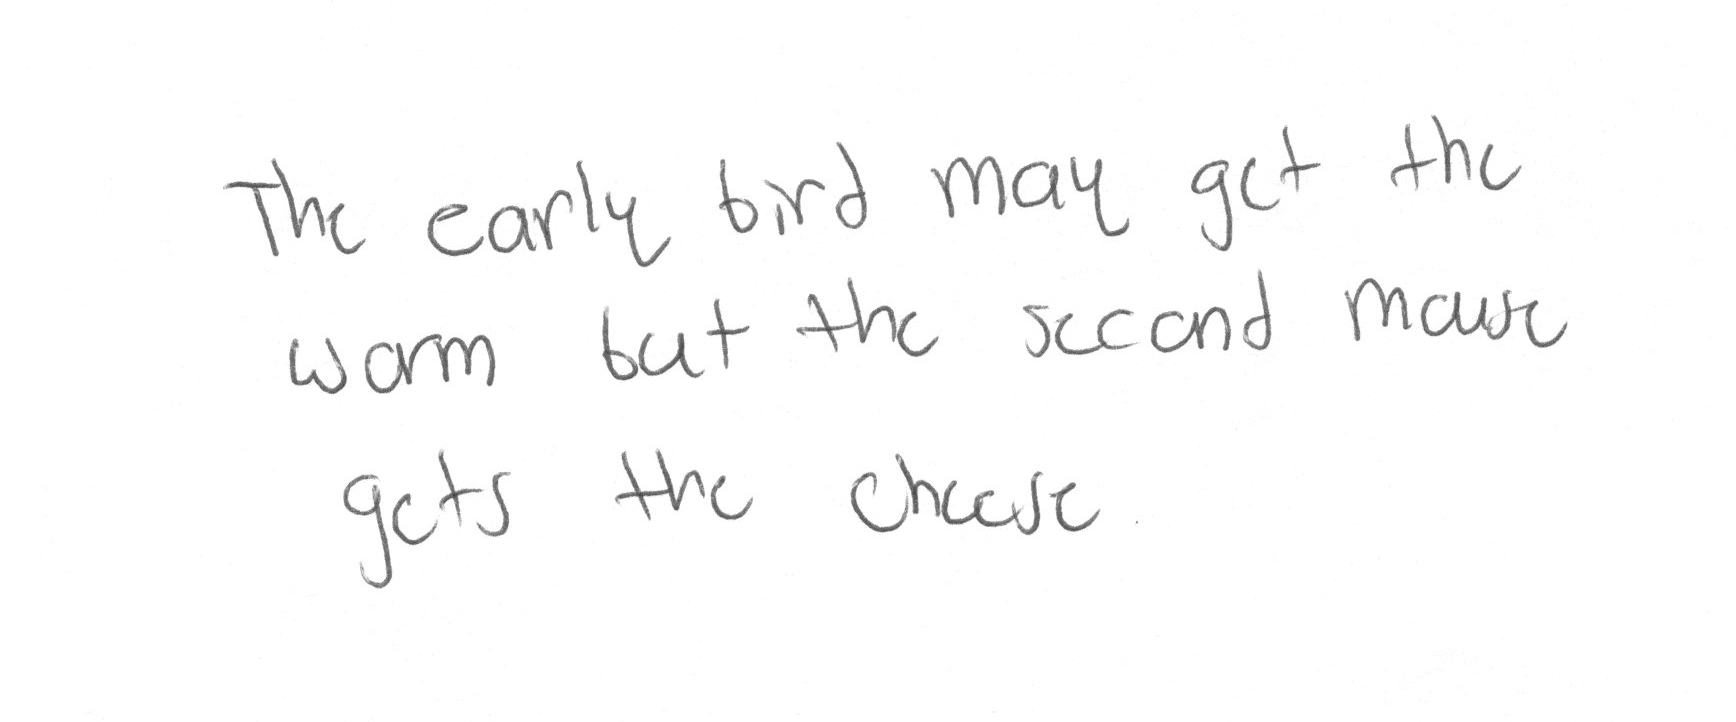 The early bird may get the
worm but the second mouse
gets the cheese.